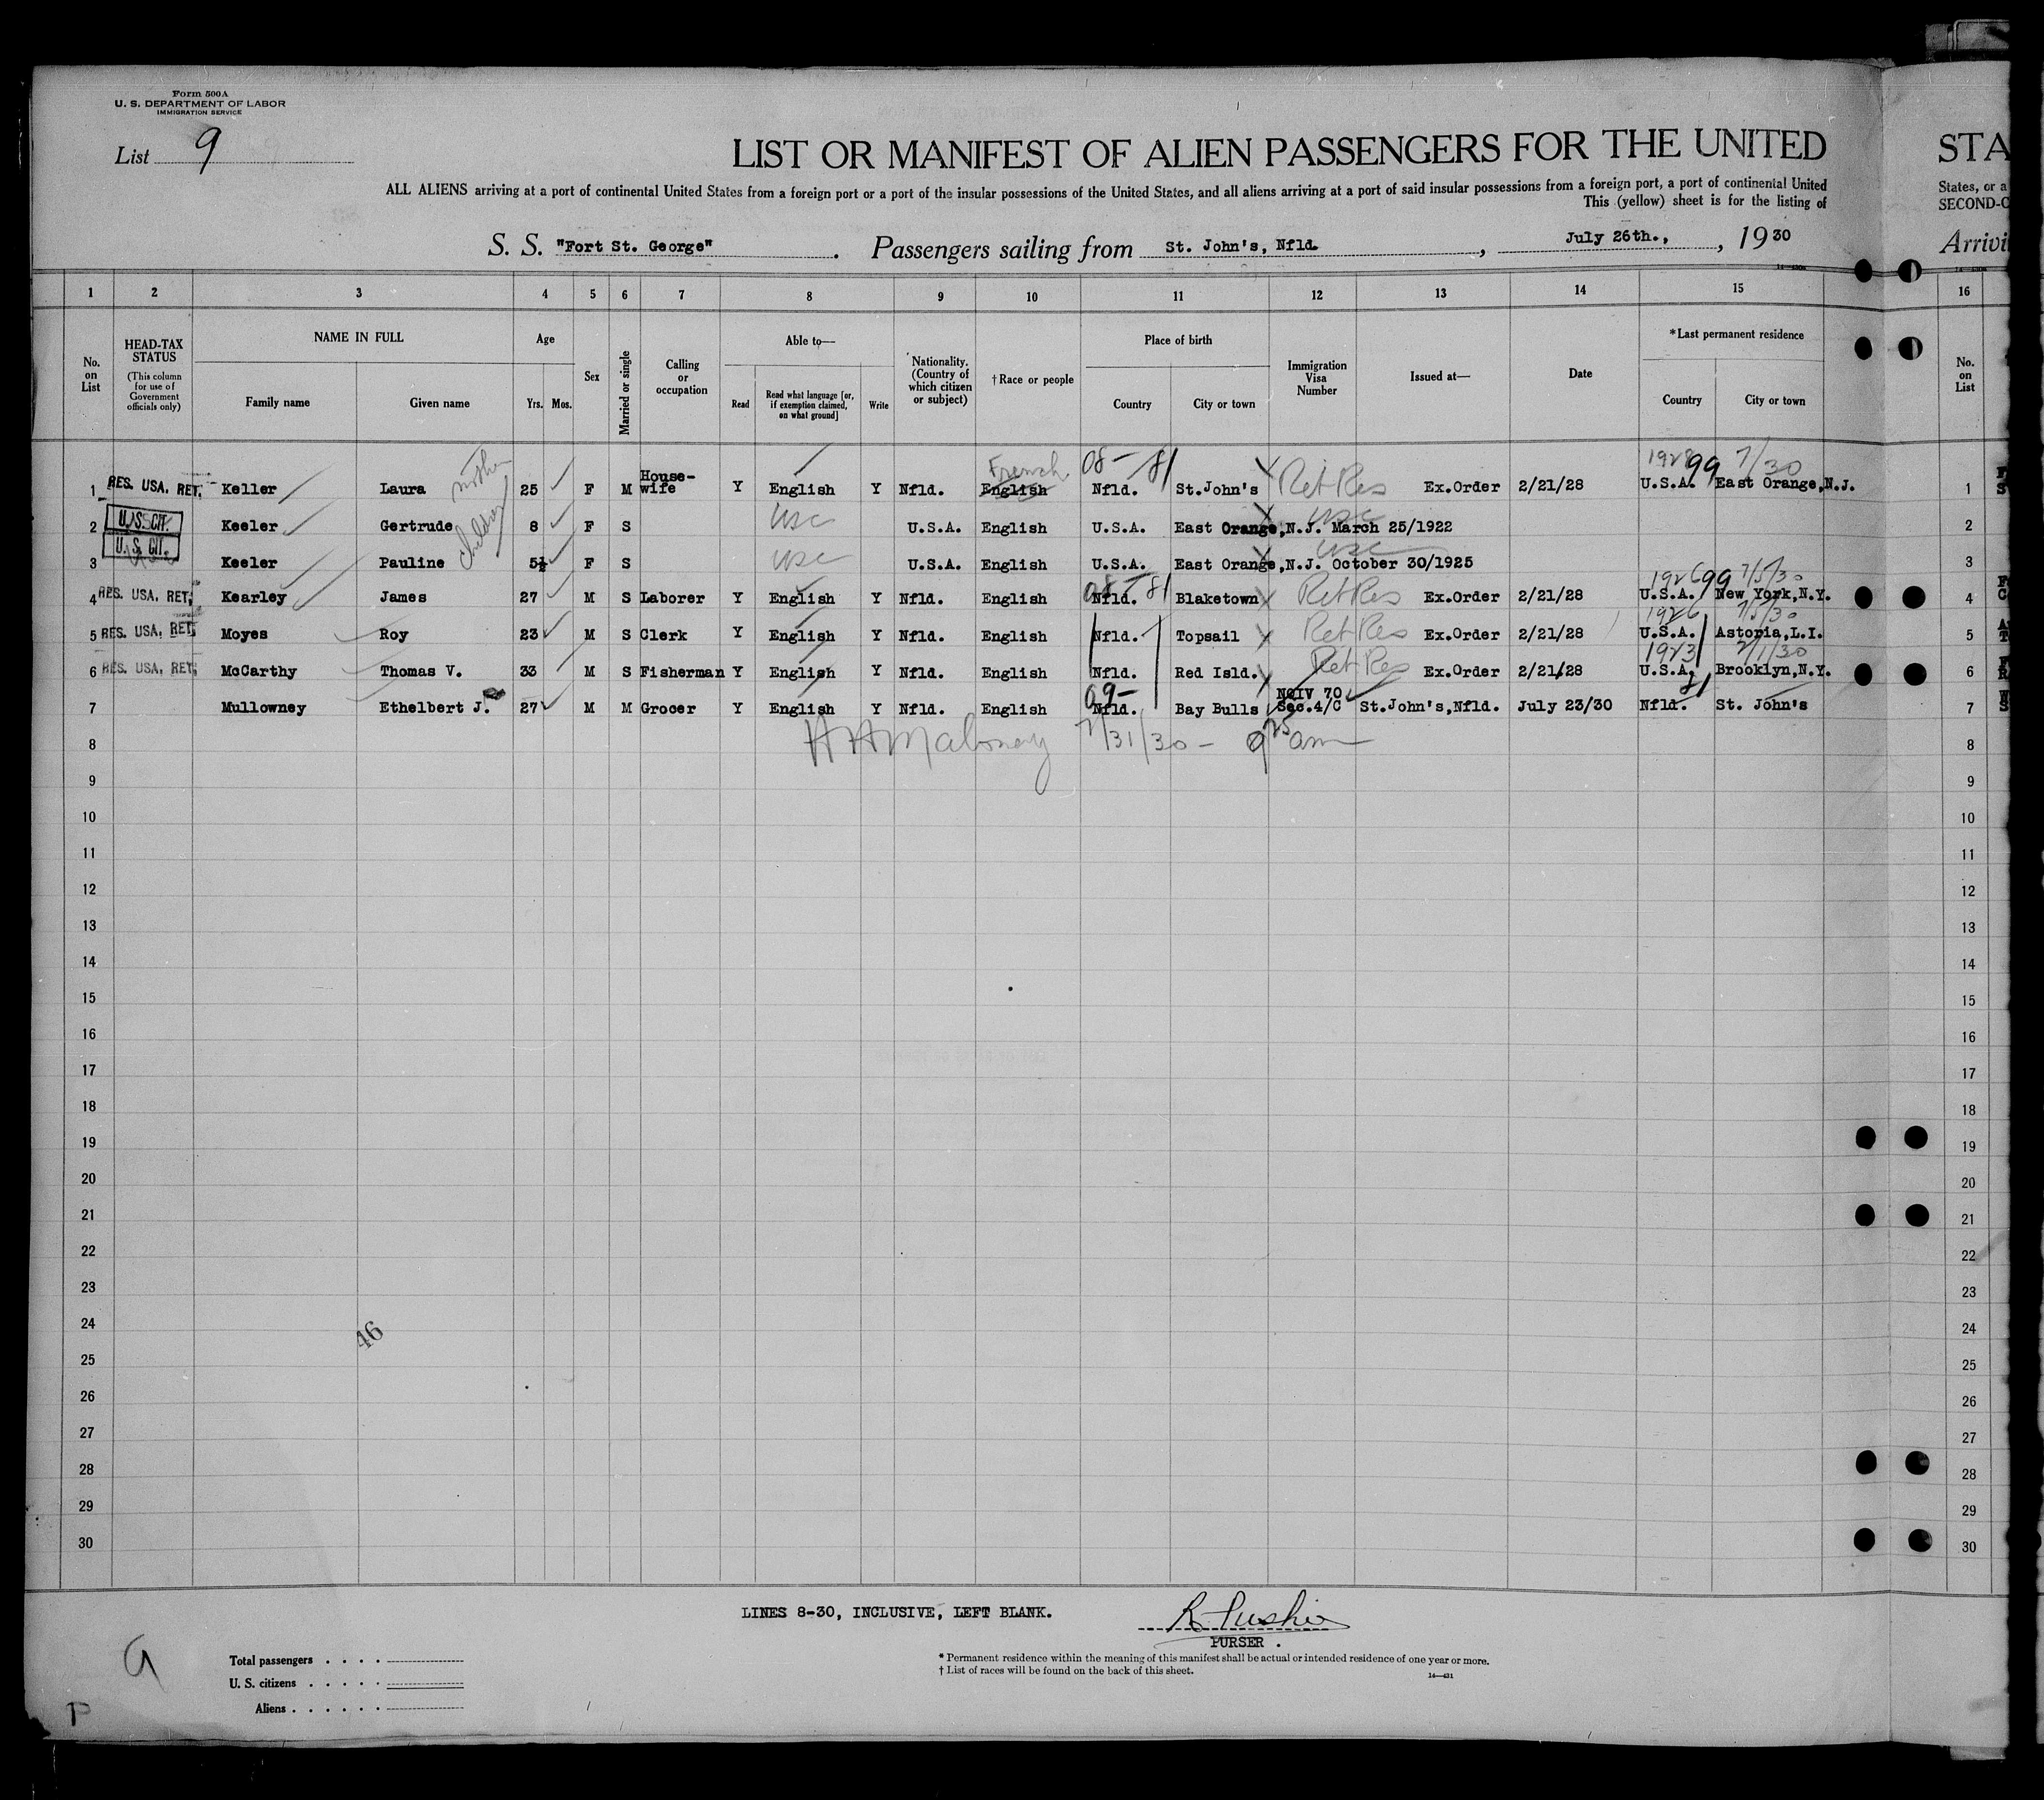 Form 500A
U. S. DEPARTMENT OF LABOR
IMMIGRATION SERVICE
List 9
LIST OR MANIFEST OF ALIEN PASSENGERS FOR THE UNITED
STA
ALL ALIENS arriving at a port of continental United States from a foreign port or a port of the insular possessions of the United States, and all aliens arriving at a port of said insular possessions from a foreign port, a port of continental United
States, or a
This (yellow) sheet is for the listing of
SECOND-C
S. S. "Fort St. George" . Passengers sailing from St. John's, Nfld. , July 26th., , 1930
Arrivi
1 2 3 4 5 6 7 8 9 10 11 12 13 14 15 16
No. on List
HEAD-TAX STATUS (This column for use of Government officials only)
NAME IN FULL
Family name Given name
Age
Yrs. Mos.
Sex
Married or single
Calling or occupation
Able to—
Read
Read what language [or, if exemption claimed, on what ground]
Write
Nationality. (Country of which citizen or subject)
† Race or people
Place of birth
Country City or town
Immigration Visa Number
Issued at—
Date
* Last permanent residence
Country City or town
No. on List
mother
French
08- 81
1928 99 7/30
1 RES. USA. RET. Keller Laura 25 F M House-wife Y English Y Nfld. English Nfld. St.John's Ret Res Ex.Order 2/21/28 U.S.A. East Orange,N.J. 1
children
2 U.S. CIT. Keeler Gertrude 8 F S USC U.S.A. English U.S.A. East Orange,N.J. March 25/1922 USC 2
3 U.S. CIT. Keeler Pauline 5½ F S USC U.S.A. English U.S.A. East Orange,N.J. October 30/1925 USC 3
08- 81
1926 99 7/5/30
4 RES. USA. RET. Kearley James 27 M S Laborer Y English Y Nfld. English Nfld. Blaketown Ret Res Ex.Order 2/21/28 U.S.A. New York,N.Y. 4
1926 7/5/30
5 RES. USA. RET. Moyes Roy 23 M S Clerk Y English Y Nfld. English Nfld. Topsail Ret Res Ex.Order 2/21/28 U.S.A. Astoria,L.I. 5
1923 7/1/30
6 RES. USA. RET. McCarthy Thomas V. 33 M S Fisherman Y English Y Nfld. English Nfld. Red Isld. Ret Res Ex.Order 2/21/28 U.S.A. Brooklyn,N.Y. 6
09- 81
7 Mullowney Ethelbert J. 27 M M Grocer Y English Y Nfld. English Nfld. Bay Bulls NQIV 70 Sec.4/C St.John's,Nfld. July 23/30 Nfld. St. John's 7
8 HH Maloney 7/31/30 - 9 25 am 8
9 9
10 10
11 11
12 12
13 13
14 14
15 15
16 16
17 17
18 18
19 19
20 20
21 21
22 22
23 23
24 24
46
25 25
26 26
27 27
28 28
29 29
30 30
LINES 8-30, INCLUSIVE, LEFT BLANK.
PURSER .
Total passengers . . . .
U. S. citizens . . . . .
Aliens . . . . . .
* Permanent residence within the meaning of this manifest shall be actual or intended residence of one year or more.
† List of races will be found on the back of this sheet.
14—431
P